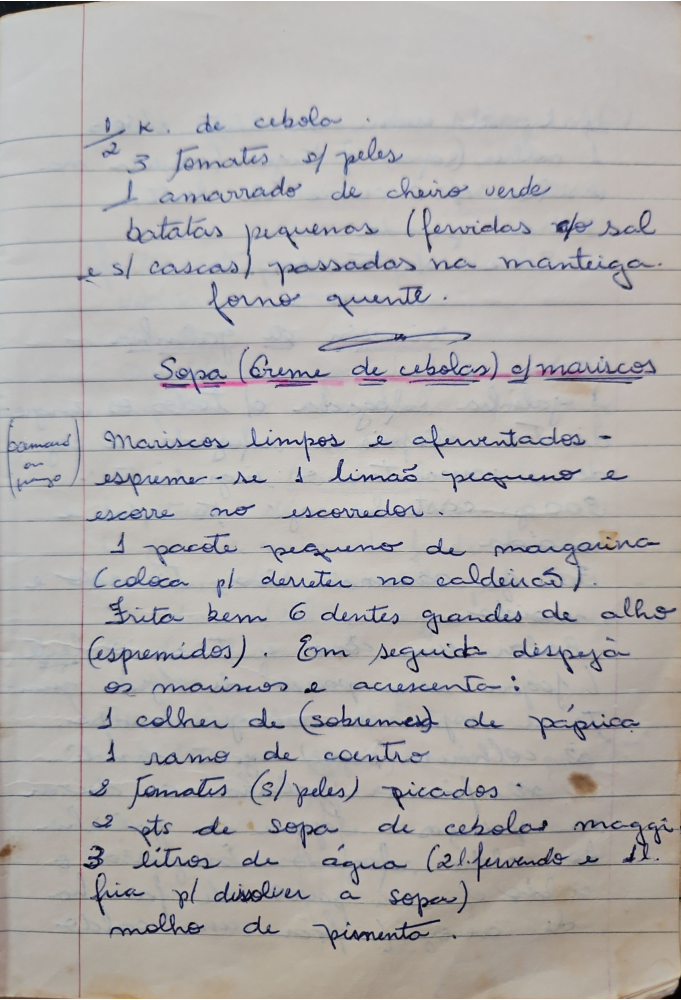 1/2 K. de cebola.
3 tomates s/ peles
1 amarrado de cheiro verde
batatas pequenas (fervidas c/o sal
e s/ cascas) passadas na manteiga.
forno quente.
Sopa (Creme de cebolas) c/ mariscos
(camarão
ou
)
Mariscos limpos e aferventados -
espreme-se 1 limão pequeno e
escorre no escorredor.
1 pacote pequeno de margarina
(coloca p/ derreter no caldeirão).
Frita bem 6 dentes grandes de alho
(espremidos). Em seguida despeja
os mariscos e acrescenta:
1 colher de (sobremesa) de páprica
1 ramo de coentro
2 tomates (s/ peles) picados.
2 pts de sopa de cebolas maggi
3 litros de água (2l. fervendo e 1l.
fria p/ dissolver a sopa)
molho de pimenta.